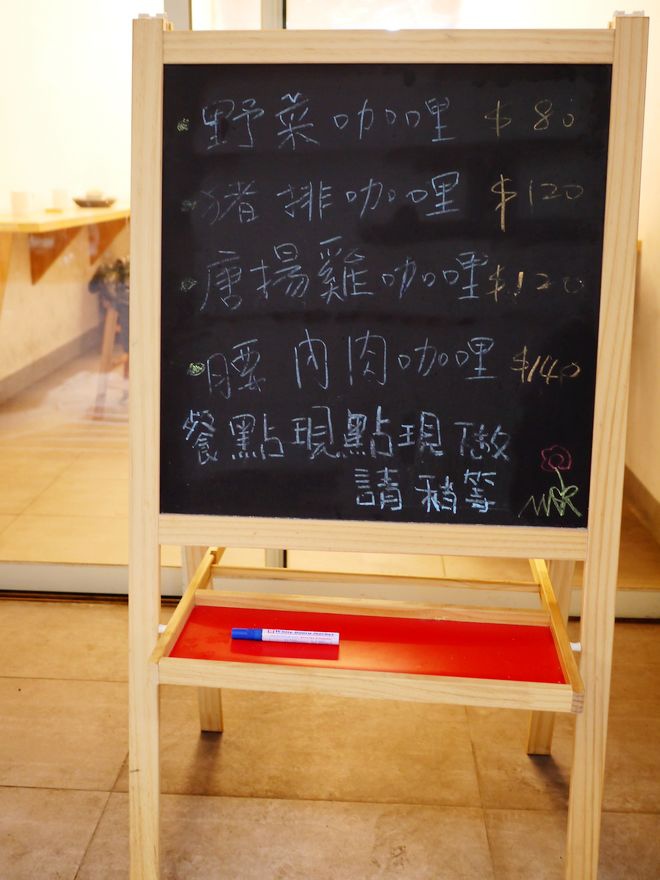 野菜咖哩 $80
豬排咖哩 $120
唐揚雞咖哩 $120
腰內肉咖哩 $140
餐點現點現做
請稍等
White Board Marker